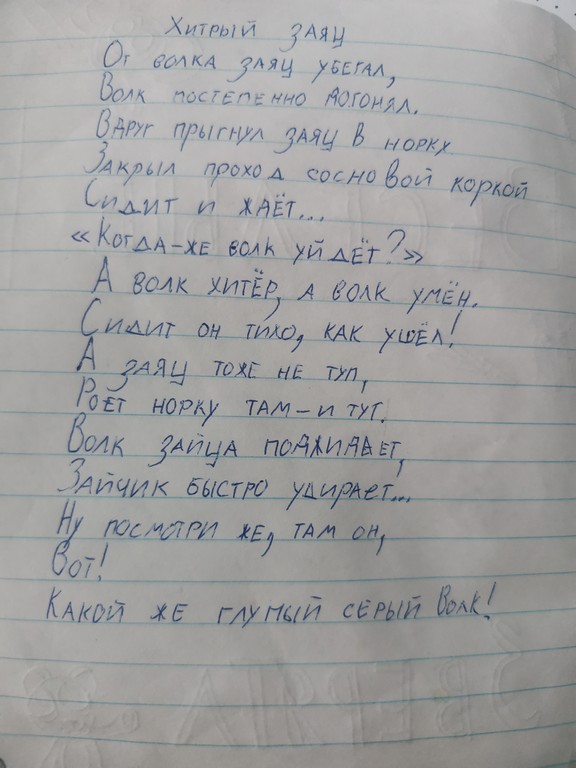 Хитрый заяц
От волка заяц убегал,
Волк постепенно догонял.
Вдруг прыгнул заяц в норку
Закрыл проход сосновой коркой
Сидит и ждёт...
«Когда-же волк уйдёт?»
А волк хитёр, а волк умён.
Сидит он тихо, как ушёл!
А заяц тоже не туп,
Роет норку там-и тут.
Волк зайца поджидает,
Зайчик быстро удирает...
Ну посмотри же, там он,
Вот!
Какой же глупый серый Волк!